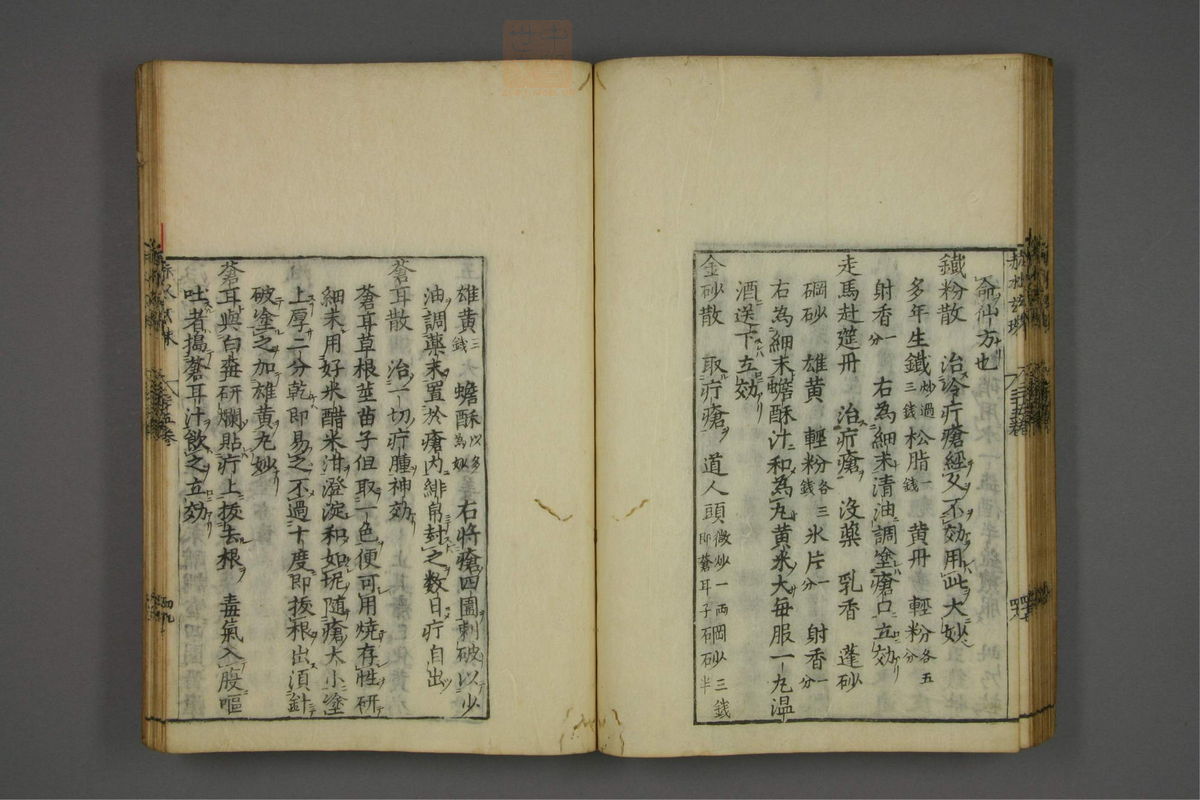 侖仙方也
鐵粉散 治冷疔瘡經久不効用此大妙
多年生鐵炒過三錢松脂一錢 黃丹 輕粉各五分
射香一分 右為細末清油調塗瘡口立効
走馬赴筵丹 治疔瘡 沒藥 乳香 蓬砂
硇砂 雄黃 輕粉各三錢 氷片一分 射香一分
右為細末蟾酥汁和為丸黃米大每服一丸温
酒送下立効
金砂散 取疔瘡 道人頭微炒一兩即蒼耳子硇砂三錢石砂半
雄黃三錢 蟾酥以多為妙 右將瘡四圍刺破以少
油調藥末置於瘡內緋帛封之數日疔自出
蒼耳散 治一切疔腫神効
蒼耳草根莖苗子但取一色便可用燒存性研
細末用好米醋米泔澄淀和如坭隨瘡大小塗
上厚二分乾即易之不過十度即拔根出須針
破塗之加雄黃尤妙
蒼耳與白粪研爛貼疔上拔去根 毒氣入腹嘔
吐者搗蒼耳汁飲之立効